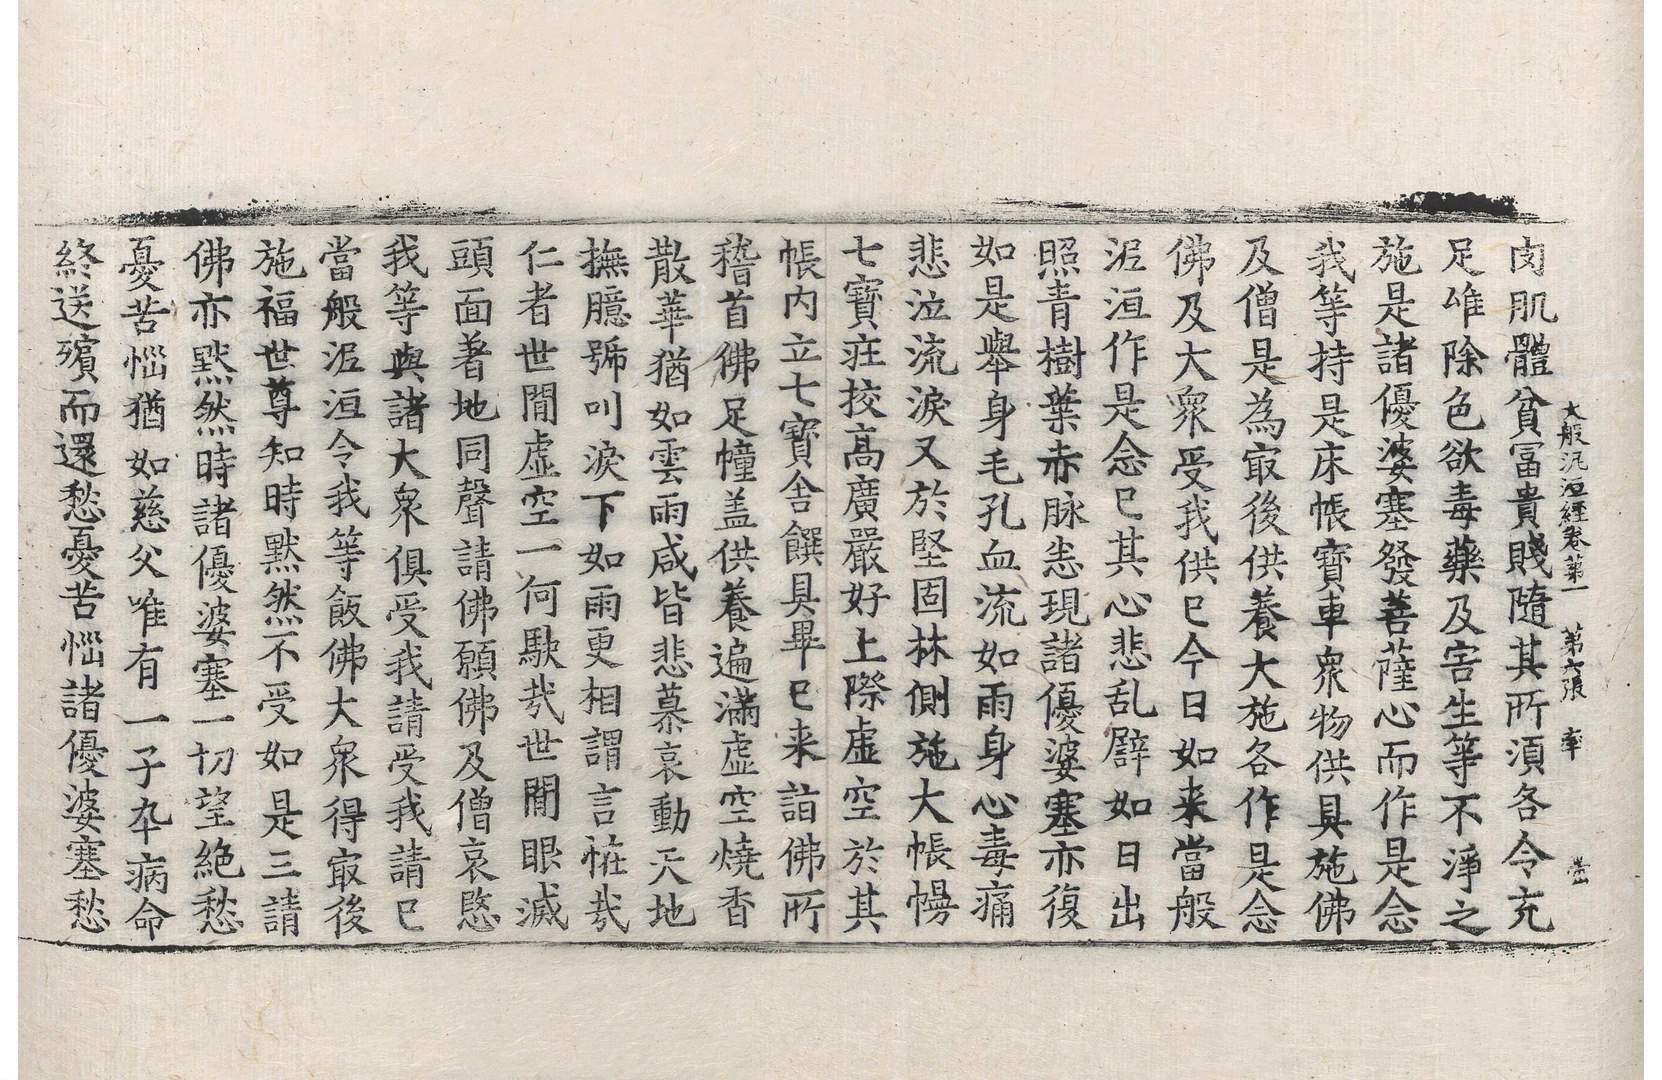 大般泥洹經卷第一　第六張　率
肉肌體貧冨貴賤隨其所湏各令充
足唯除色欲毒藥及害生等不淨之
施是諸優婆塞發菩薩心而作是念
我等持是床帳寳車衆物供具施佛
及僧是為㝡後供養大施各作是念
佛及大衆受我供已今日如来當般
泥洹作是念已其心悲乱譬如日出
照青樹葉赤脉悉現諸優婆塞亦復
如是舉身毛孔血流如雨身心毒痛
悲泣流淚又於堅固林側施大帳幔
七寳莊挍高廣嚴好上際虚空於其
帳内立七寳舎饌具畢已来詣佛所
稽首佛足幢盖供養遍滿虚空燒香
散華猶如雲雨咸皆悲慕哀動天地
撫臆號叫淚下如雨更相謂言恠㢤
仁者世閒虚空一何駃㢤世閒眼滅
頭面著地同聲請佛願佛及僧哀愍
我等與諸大衆俱受我請受我請已
當般泥洹令我等飯佛大衆得㝡後
施福世尊知時黙然不受如是三請
佛亦黙然時諸優婆塞一切望絶愁
憂苦惱猶如慈父唯有一子卒病命
終送殯而還愁憂苦惱諸優婆塞愁